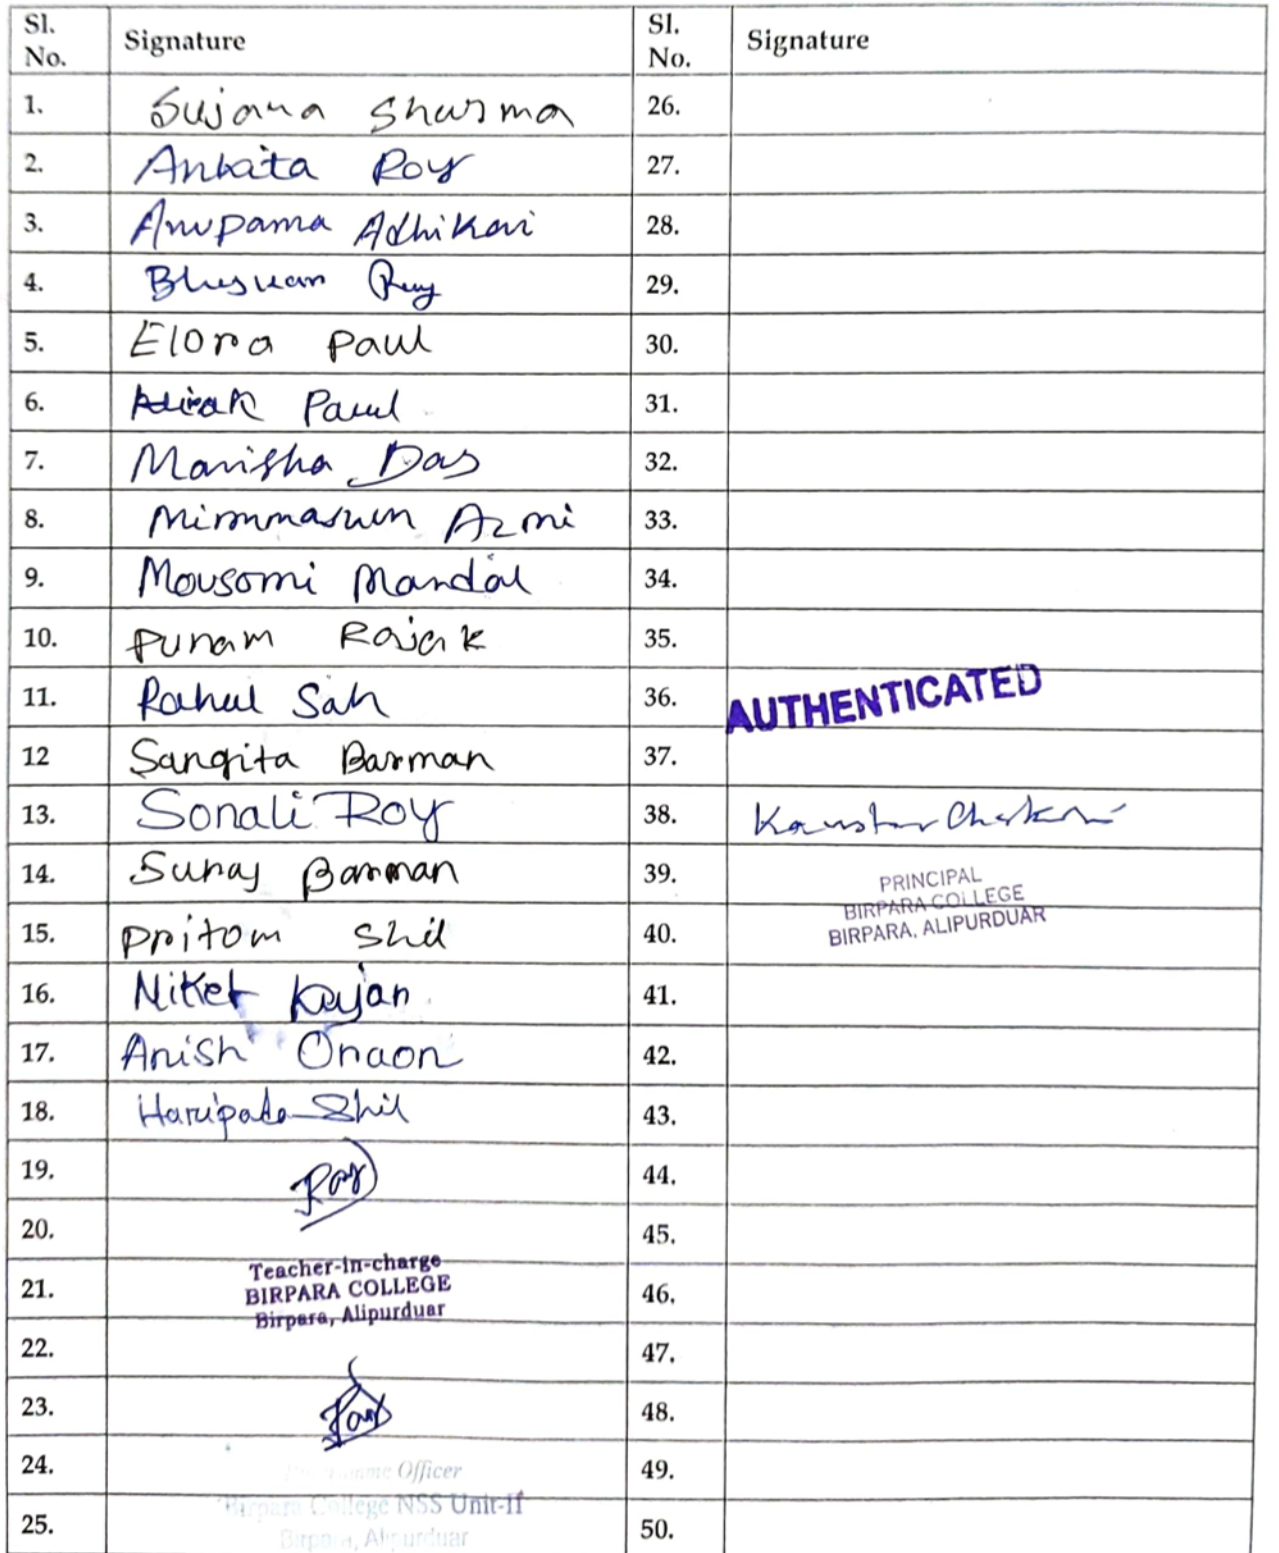 Sl. No. Signature Sl. No. Signature
1. Sujana Sharma 26.
2. Ankita Roy 27.
3. Anupama Adhikari 28.
4. Roy 29.
5. Elora Paul 30.
6. Paul 31.
7. Manisha Das 32.
8. Azmi 33.
9. Mousomi Mandal 34.
10. Punam Rajak 35.
11. Rahul Sah 36. AUTHENTICATED
12 Sangita Barman 37.
13. Sonali Roy 38.
14. Suraj Barman 39. PRINCIPAL
BIRPARA COLLEGE
15. Pritom Shil 40. BIRPARA, ALIPURDUAR
16. Niket 41.
17. Anish Oraon 42.
18. Haripada Shil 43.
19. Roy 44.
20. 45.
Teacher-in-charge
21. BIRPARA COLLEGE 46.
Birpara, Alipurduar
22. 47.
23. 48.
24. Programme Officer 49.
Birpara College NSS Unit-II
25. Birpara, Alipurduar 50.